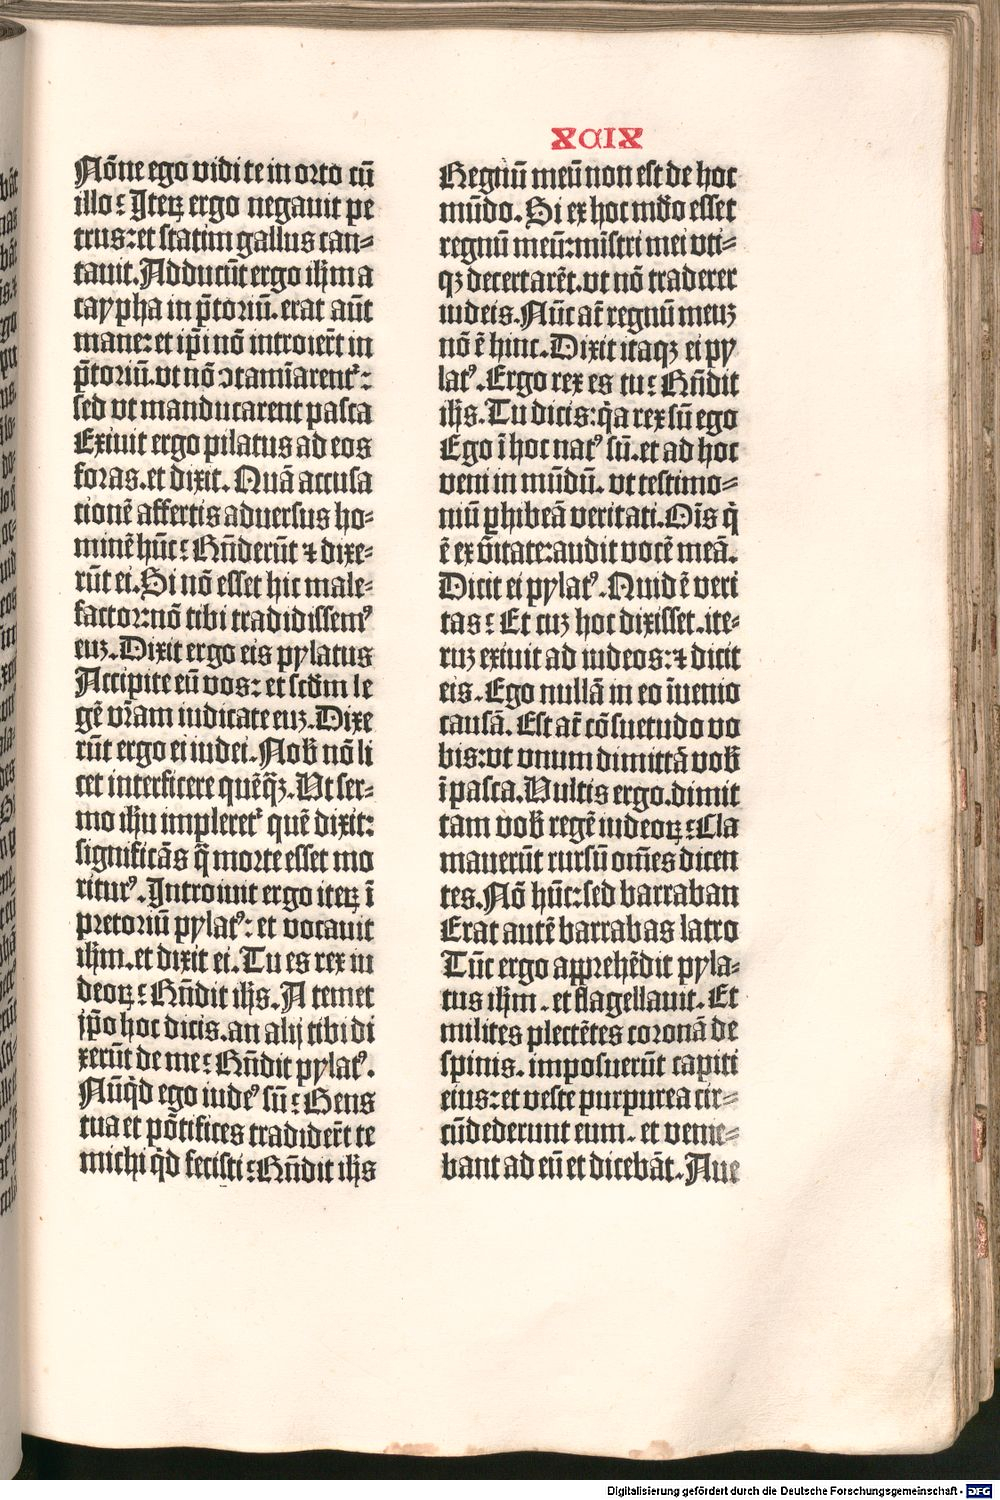 XCIX
Nõne ego vidi te in orto cũ
illo: Iteꝝ ergo negauit pe
trus: et statim gallus can⸗
tauit. Adducũt ergo ihm̃ a
caypha in p̃toriũ. erat aũt
mane: et ip̃i nõ introiert̃ in
p̃toriũ. vt nõ ꝯtamĩarent᷑:
sed vt manducarent pasca
Exiuit ergo pilatus ad eos
foras. et dixit. Quã accusa
tionẽ affertis aduersus ho⸗
minẽ hũc: Rñderũt ⁊ dixe⸗
rũt ei. Si nõ esset hic male⸗
factor: nõ tibi tradidissemꝰ
euꝫ. Dixit ergo eis pylatus
Accipite eũ vos: et scd̃m le
gẽ vr̃am iudicate euꝫ. Dixe
rũt ergo ei iudei. Nob̃ nõ li
cet interficere quẽq̃ꝫ. Vt ser⸗
mo ihũ impleret᷑ quẽ dixit:
significãs q̃ morte esset mo
riturꝰ. Introiuit ergo iteꝝ ĩ
pretoriũ pylatꝰ: et vocauit
ihm̃. et dixit ei. Tu es rex iu
deoꝝ: Rñdit ihs̃. A temet
ip̃o hoc dicis. an alij tibi di
xerũt de me: Rñdit pylatꝰ.
Nũqd̃ ego iudeꝰ sũ: Gens
tua et põtifices tradidert̃ te
michi qd̃ fecisti: Rñdit ihs̃
Regnũ meũ non est de hoc
mũdo. Si ex hoc mũdo esset
regnũ meũ: mĩstri mei vti⸗
qꝫ decertarẽt. vt nõ traderer
iudeis. Nũc at̃ regnũ meuꝫ
nõ ẽ hinc. Dixit itaqꝫ ei py
latꝰ. Ergo rex es tu: Rñdit
ihs̃. Tu dicis: q̃a rex sũ ego
Ego ĩ hoc natꝰ sũ. et ad hoc
veni in mũdũ. vt testimo⸗
niũ ꝑhibeã veritati. Oĩs q̃
ẽ ex ṽitate: audit vocẽ meã.
Dicit ei pylatꝰ. Quid ẽ veri
tas: Et cuꝫ hoc dixisset. ite⸗
ruꝫ exiuit ad iudeos: ⁊ dicit
eis. Ego nullã in eo ĩuenio
causã. Est at̃ cõsuetudo vo
bis: vt vnum dimittã vob̃
ĩ pasca. Vultis ergo. dimit
tam vob̃ regẽ iudeoꝝ: Cla
mauerũt rursũ om̃es dicen
tes. Nõ hũc: sed barraban
Erat autẽ barrabas latro
Tũc ergo apprehẽdit pyla⸗
tus ihm̃. et flagellauit. Et
milites plectẽtes coronã de
spinis. imposuerũt capiti
eius: et veste purpurea cir⸗
cũdederunt eum. et venie⸗
bant ad eũ et dicebãt. Aue
Digitalisierung gefördert durch die Deutsche Forschungsgemeinschaft - DFG